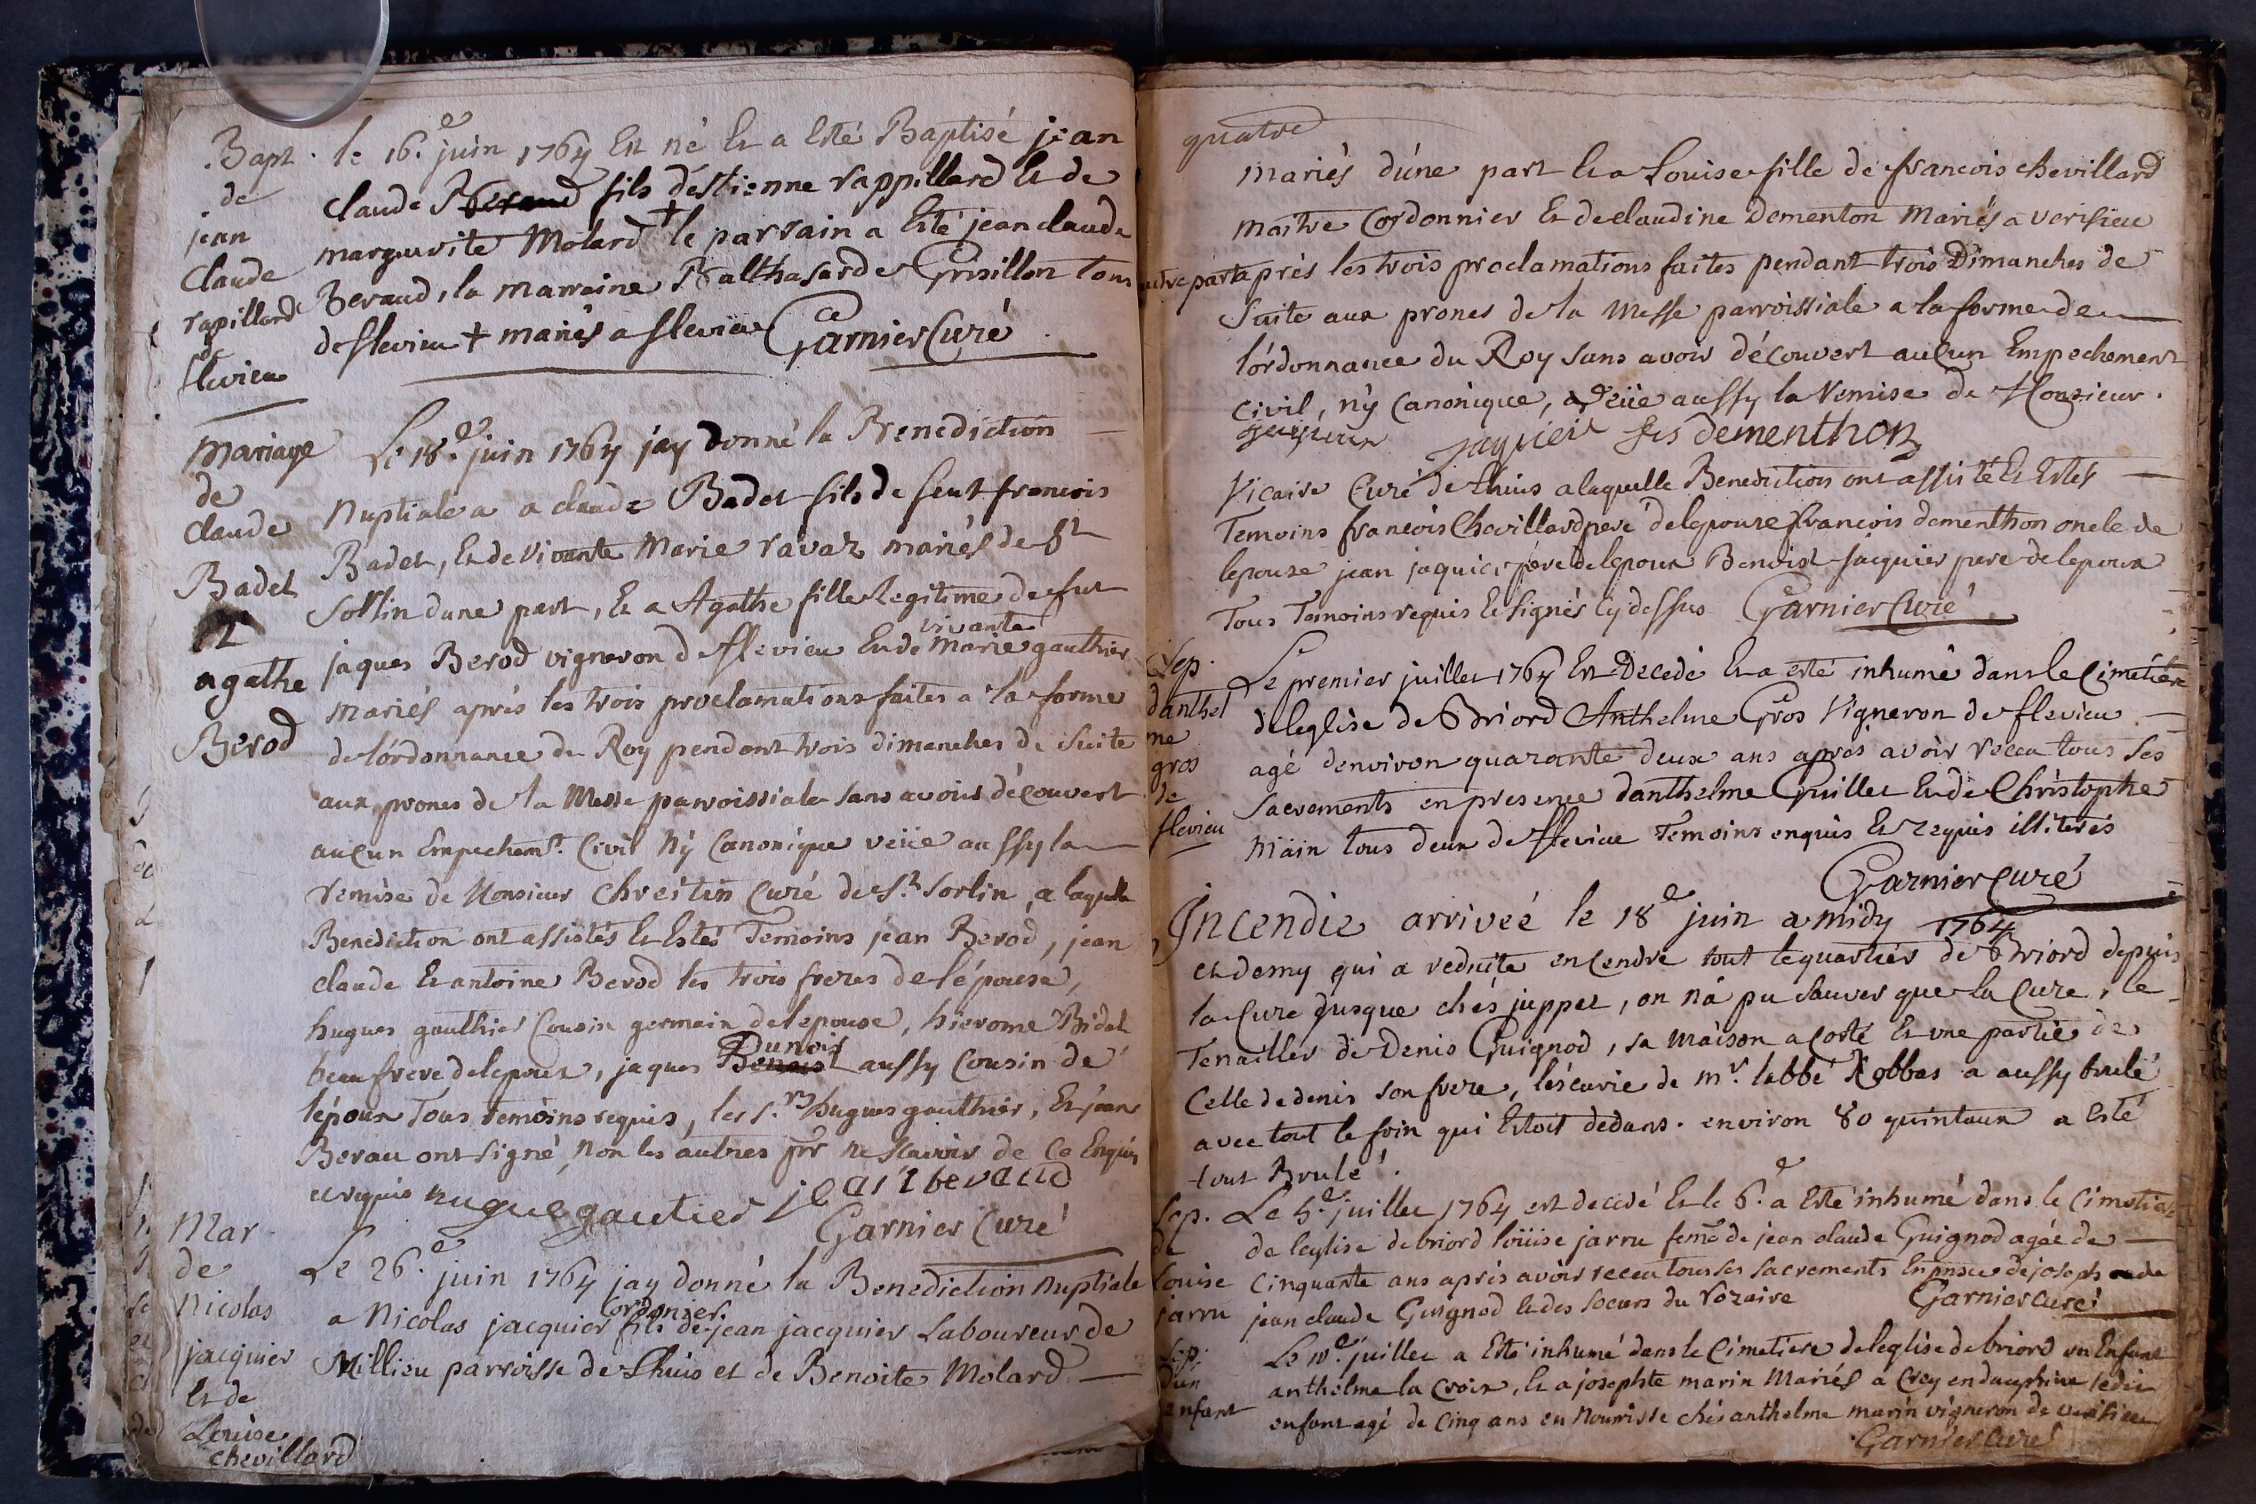 Bapt.
de
jean
Claude
rapillard
de
flevieu
le 16.e juin 1764 Est né Et a Esté Baptisé jean
claude Beraud fils d'estienne rappillard Et de
marguerite Molard + le parrain a Esté jean claude
Beraud, la marraine Balthasarde Grisillon tous
de flevieu + mariés a flevieu Garnier Curé
mariage
de
claude
Badet
Et
agathe
Berod
Le 18.e juin 1764 jay donné la Benediction
Nuptiale a a claude Badet fils de feut francois
Badet, Et de Vivante Marie ravaz mariés de St
Sorlin dune part, Et a Agathe fille Legitime de fut
vivante
jaques Berod vigneron de flevieu Et de Marie gauthier
Mariés aprés les trois proclamations faites a la forme
de l'órdonnance du Roy pendant trois dimanches de Suite
aux prones de la Messe parroissiale sans avoir découvert
aucun Empechemt. Civil Ny Canonique veüe aussy la
remise de Monsieur Chreitin Curé de St. Sorlin, a laquelle
Benediction ont assistés Et Estés Temoins jean Berod, jean
claude Et antoine Berod les trois freres de l'épouse,
hugues gauthier Cousin germain de lepouse, hierome Bidet
Dunois
beau frere de lepoux, jaques Benoist aussy Cousin de
lépoux Tous temoins requis, les s.rs hugues gauthier, Et jean
Berau ont signé, Non les autres pr ne scavoir de Ce Enquis
et requis hugue gautier jean beraud
Garnier Curé
Mar
de
Nicolas
jacquier
Et de
Louise
chevillard
Le 26.e juin 1764 jay donné la Benediction Nuptiale
Cordonier
a Nicolas jacquier fils de jean jacquier Laboureur de
Millieu parroisse de Lhuis et de Benoite Molard
quatre
mariés d'úne part Et a Louise fille de francois chevillard
maitre Cordonnier Et de claudine Dementon Mariés a verisieu
autre part aprés les trois proclamations faites pendant trois Dimanches de
Suite aux prones de la Messe parroissiale a la forme de
l'órdonnance du Roy sans avoir découvert auCun Empechement
Civil, n'y Canonique, veüe aussy la Remise de Monsieur
jaquier frs dementhon
Vicaire Curé de Lhuis a laquelle Benediction ont assisté Et Estés
Temoins francois Chevillard pere de lepouse francois dementhon oncle de
lepouse jean jaquier pére de lepoux Benoist jacquier pere de lepoux
Tous Temoins requis Et signés Cy dessus Garnier Curé
Sep.
danthel
me
gros
de
flevieu
Le premier juillet 1764 Est Decedé Et a esté inhumé dans le Cimetiére
de leglise de Briord Anthelme Gros Vigneron de flevieu
agé denviron quarante deux ans aprés avoir receu tous ses
sacrements en presence danthelme Guillet Et de Christophe
Main tous deux de flevieu Temoins enquis Et requis illiterés
Garnier Curé
Incendie arriveé le 18e juin a midy 1764
et demy qui a reduite en Cendre tout le quartier de Briord depuis
la Cure jusque chés juppet, on n'á pu sauver que la Cure, le
Tenailler de Denis Guignod, sa maison a coste Et une partie de
Celle de denis son frere, l'écurie de mr. labbé Robbas a aussy brulé
avec tout le foin qui Estoit dedans. environ 80 quintaux a Esté
tout Brulé.
Sep.
de
Louise
jarru
Le 5.e juillet 1764 est decedé Et le 6.e a Esté inhumé dans le Cimetiere
de leglise de briord loüise jarru feme de jean claude Guignod agée de
Cinquante ans aprés avoir receu tous ses sacrements En pnce de joseph et de
jean claude Guignod Et des soeurs du rozaire Garnier Curé
Sep.
dun
enfant
Le 10.e juillet a Esté inhumé dans le Cimetiere de leglise de briord un Enfant
anthelme la croix, Et a josephte marin Mariés a Crey en dauphiné ledit
enfant agé de Cinq ans en nourrisse chés anthelme marin vigneron de verisieu
Garnier Curé